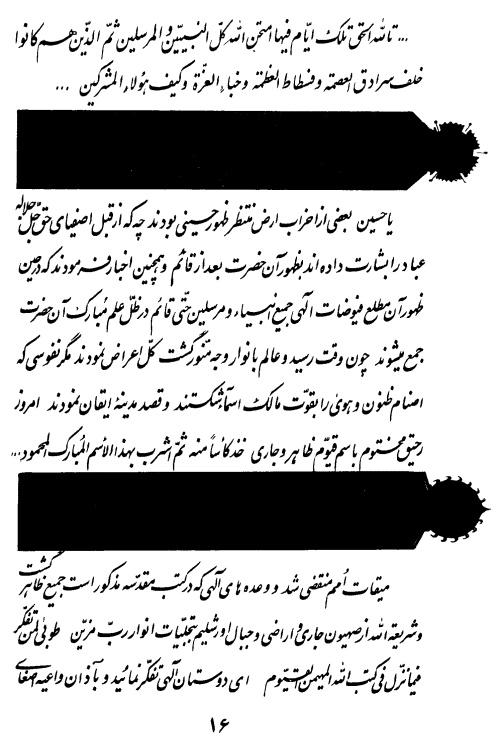 ... تالله الحق تلک ایّام فیها امتحن الله کلّ النبیّین و المرسلین ثمّ الذّین هم کانوا
خلف سرادق العصمة و فسطاط العظمة و خباء العزّة و کیف هؤلاء المشرکین ...
یا حسین بعضی از احزاب ارض منتظر ظهور حسینی بودند چه که از قبل اصفیای حق جلّ جلاله
عباد را بشارت داده اند بظهور آن حضرت بعد از قائم و همچنین اخبار فرمودند که در حین
ظهور آن مطلع فیوضات الهی جمیع انبیاء و مرسلین حتّی قائم در ظلّ علم مبارک آن حضرت
جمع میشوند چون وقت رسید و عالم بانوار وجه منوّر گشت کلّ اعراض نمودند مگر نفوسی که
اصنام ظنون و هوی را بقوّت مالک اسماء شکستند و قصد مدینهٔ ایقان نمودند امروز
رحیق مختوم باسم قیّوم ظاهر و جاری خذ کأساً منه ثمّ اشرب بهذا الأسم المبارک المحمود ...
میقات اُمم منقضی شد و وعده های الهی که در کتب مقدّسه مذکور است جمیع ظاهر گشت
و شریعة الله از صهیون جاری و اراضی و جبال اورشلیم بتجلّیات انوار ربّ مزیّن طوبی لمن تفکّر
فیما نزّل فی کتب الله المهیمن القیّوم ای دوستان الهی تفکّر نمائید و بآذان واعیه اصغای
۱۶